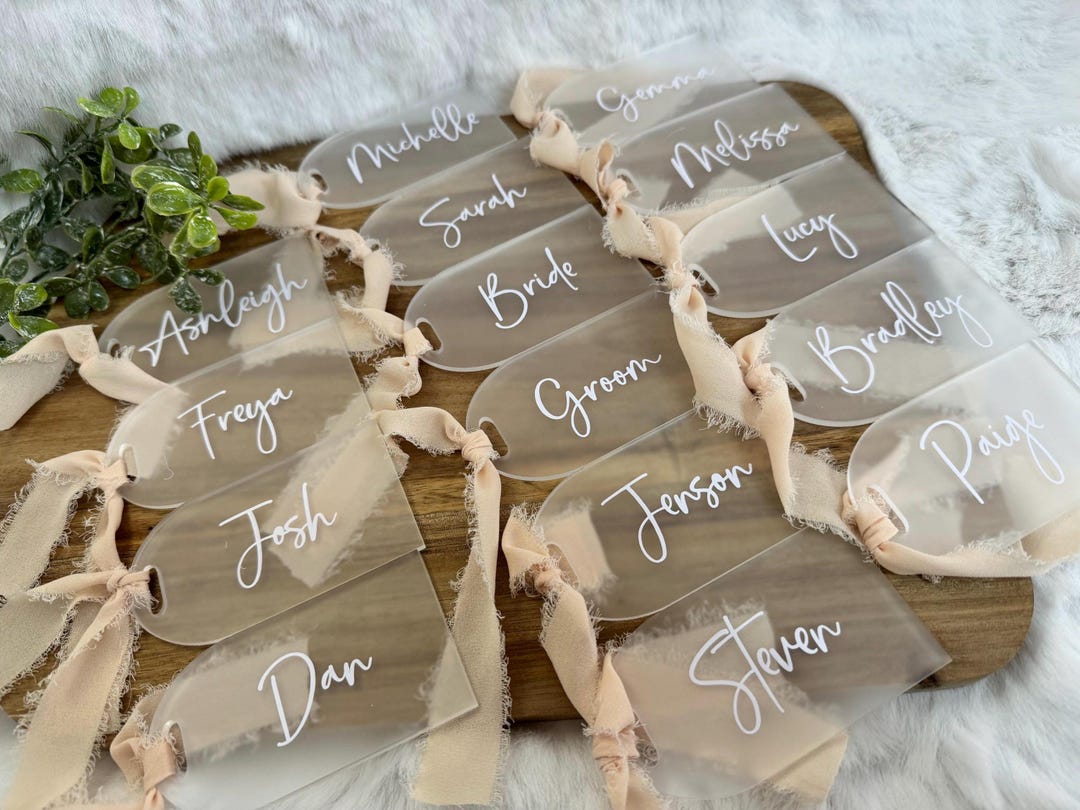 Michelle
Gemma
Sarah
Melissa
Bride
Lucy
Ashleigh
Groom
Bradley
Freya
Jenson
Paige
Josh
Steven
Dan